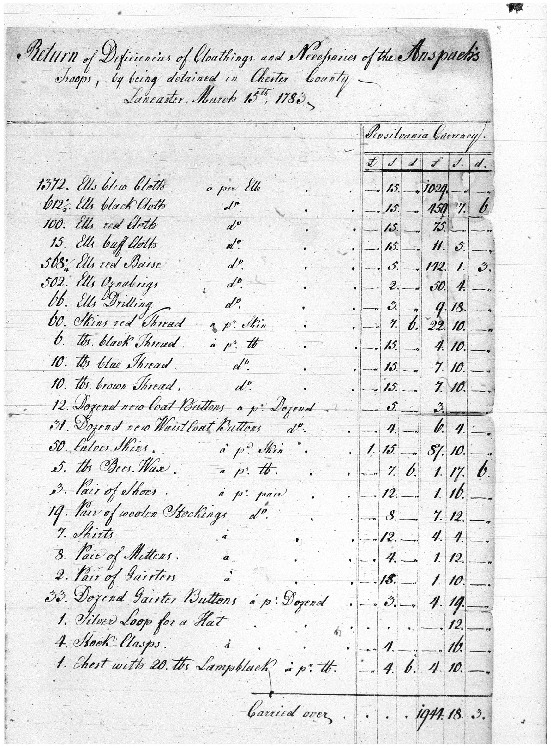 Return of Deficiencies of Cloathings and Neceparies of the Anspach's
Troops, by being detained in Chester County
Lancaster March 15th. 1783.
Pensilvania Currency.
£ s d £ s. d.
1372. Ells blew Cloth à per Ell 15. 1029.
612½ Ells black Cloth do. 15. 459 7. 6
100. Ells red Cloth do. 15. 75
15. Ells buff Cloth do. 15. 11. 5.
568¼ Ells red Baise do. 5. 142. 1. 3.
502. Ells Oznabrigs do. 2. 50. 4.
66. Ells Drilling do. 3. 9. 18.
60. Skins red Thread à pr. Skin 7. 6. 22. 10.
6. tbs. black Thread à pr. tb 15. 4. 10.
10. tbs blue Thread. do. 15. 7. 10.
10. tbs brown Thread. do. 15. 7. 10.
12. Dozend new Coat Buttons à pr. Dozend 5. 3.
31. Dozend new Waistcoat Buttons do. 4. 6. 4.
50. Calves Skins. à pr. Skin 1. 15. 87. 10.
5. tbs Bees Wax. à pr. tb. 7. 6. 1. 17. 6
3. Pair of Shoes. à pr. pair 12. 1. 16.
19. Pair of woolen Stockings do. 8. 7. 12.
7. Shirts à 12. 4. 4.
8. Pair of Mittens. à 4. 1. 12.
2. Pair of Gaiters à 18. 1. 10.
33. Dozend Gaiter Buttons à pr. Dozend 3. 4. 19.
1. Silver Loop for a Hat 12.
4. Stock Clasps. à 4. 16.
1. Chest with 20. tbs Lampblack à pr. tb. 4. 6. 4. 10.
Carried over 1944. 18. 3.